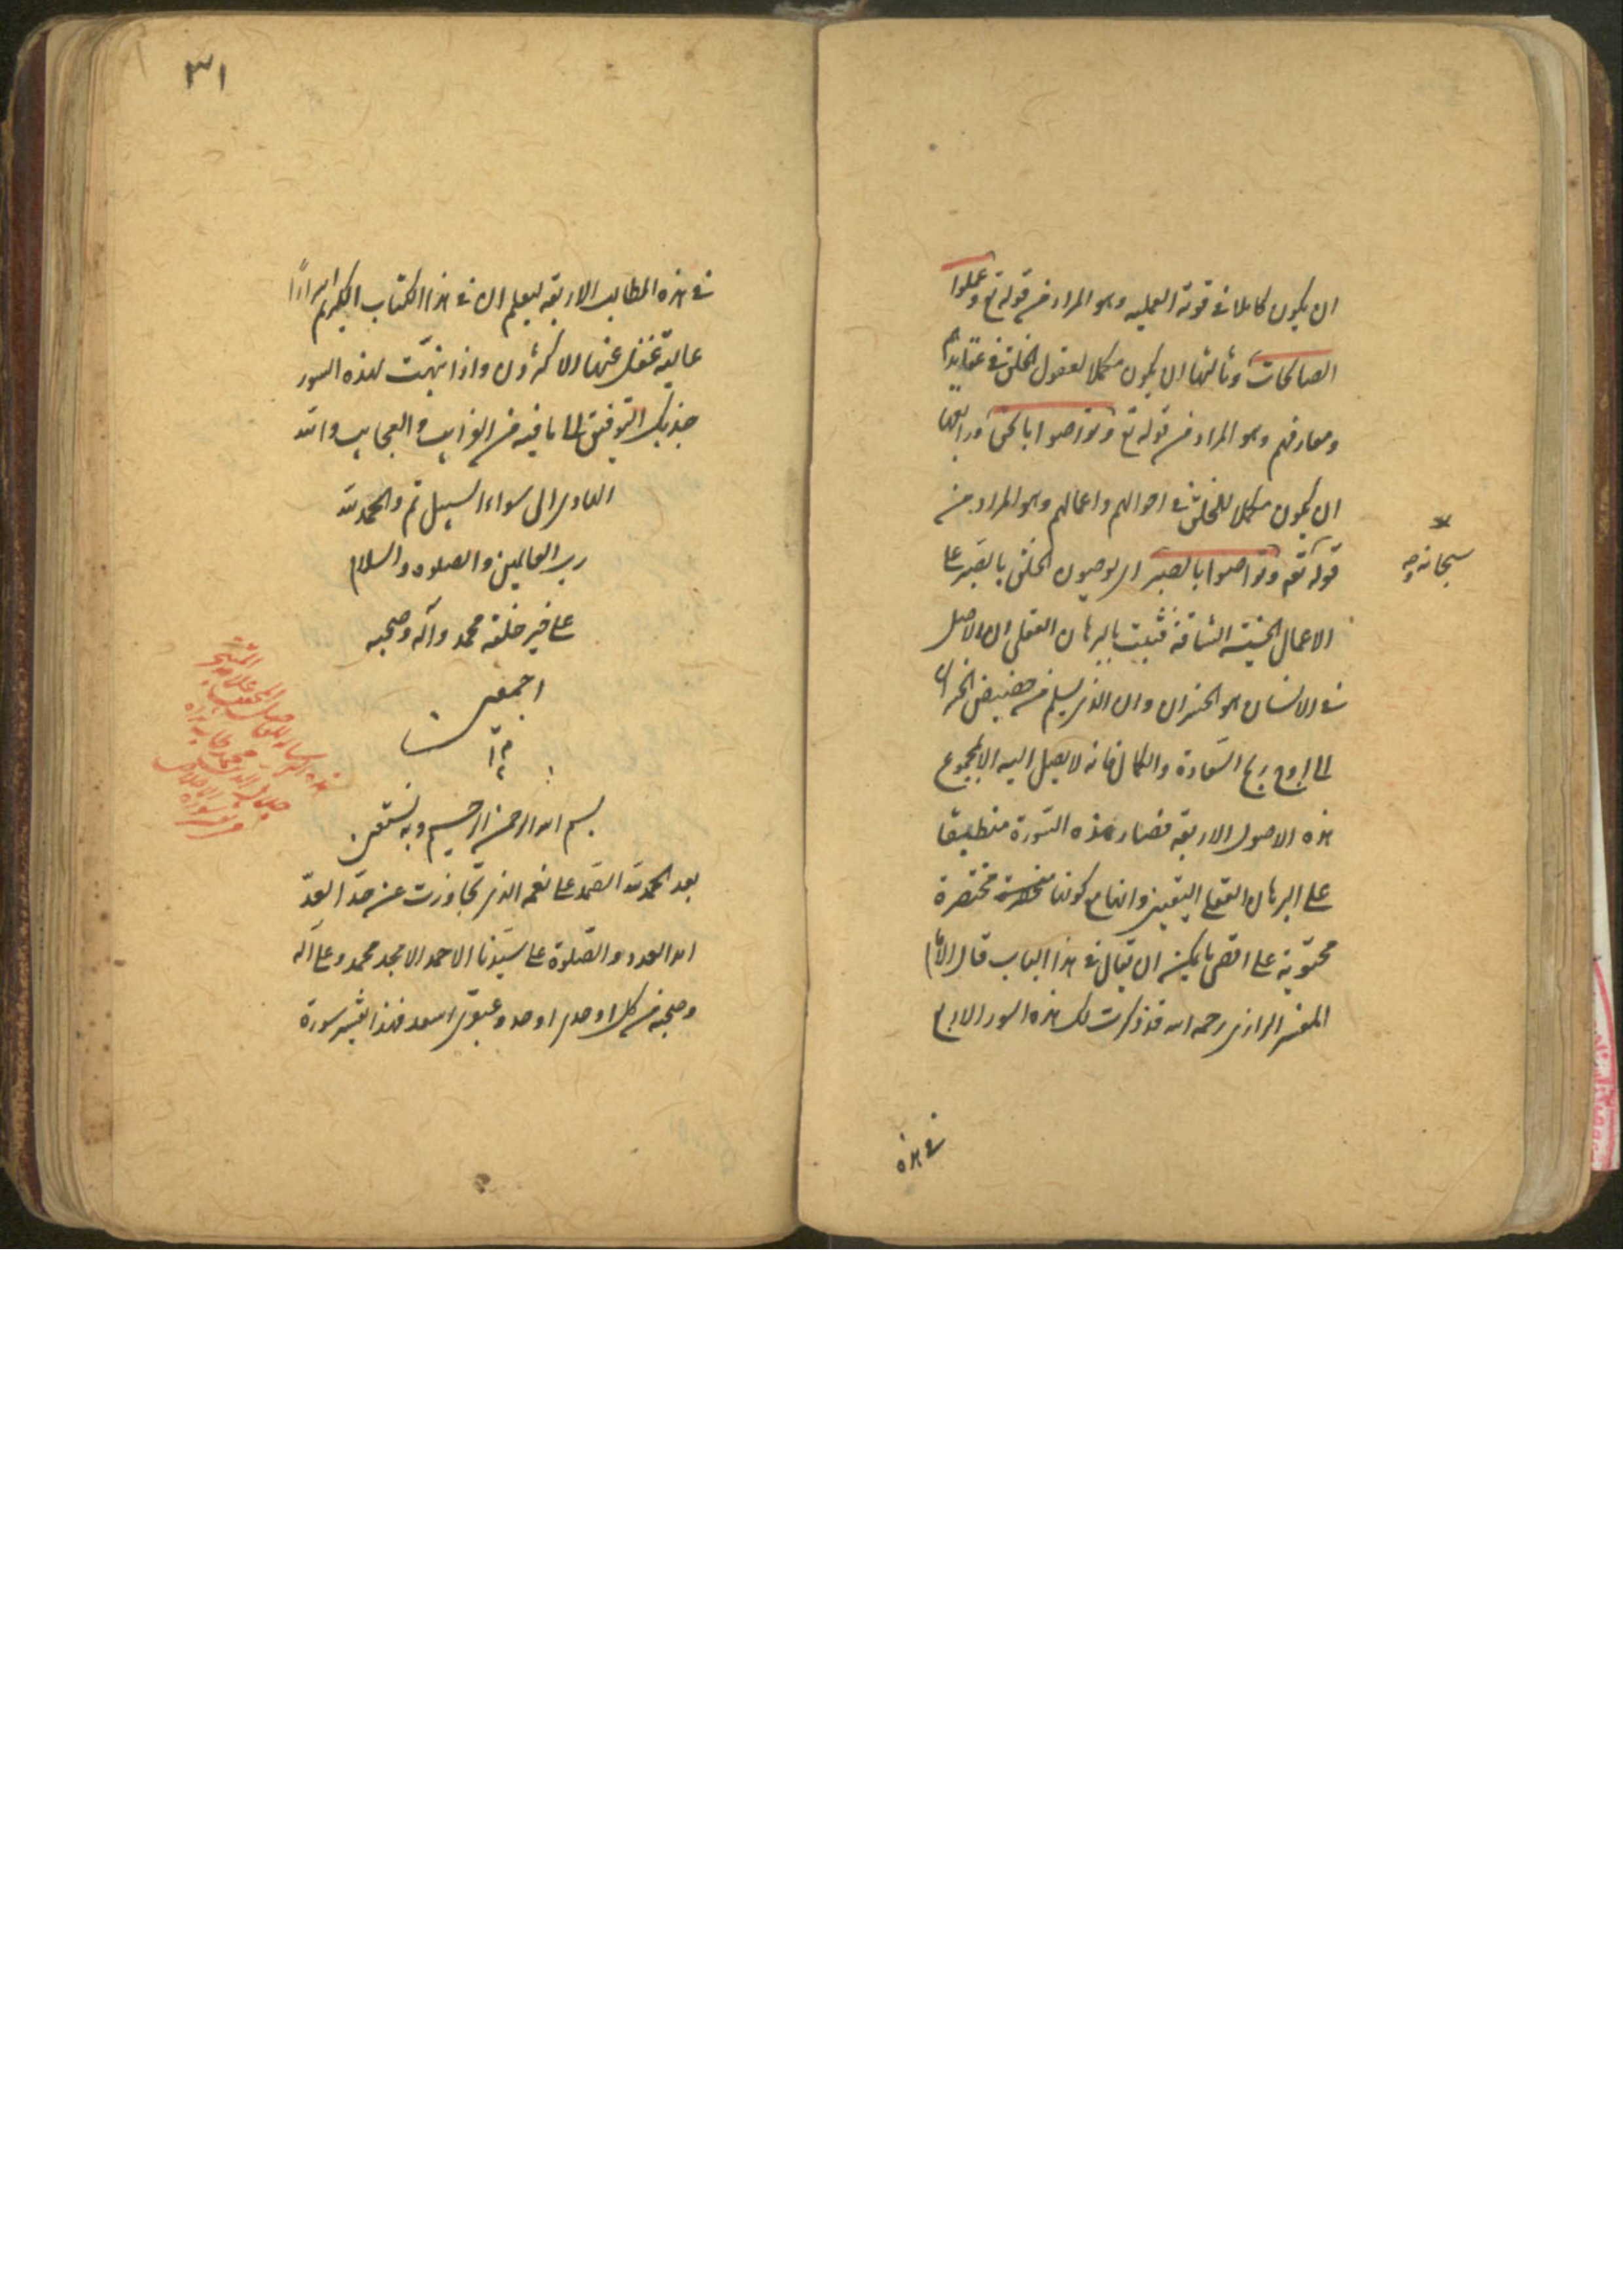 ان يكون كاملا فى قوته العمليه وهو المراد من قوله تع وعملوا
الصالحات وثالثها ان يكون مكملا لعقول الخلق فى عقايدهم
ومعارفهم وهو المراد من قوله تع وتواصوا بالحق ورابعها
ان يكون مكملا للخلق فى احوالهم واعمالهم وهو المراد من
قوله تعه وتواصوا بالصبر اى يوصون الخلق بالصبر على
سبحانه
الاعمال الشاقة فثبت بالبرهان العقلى ان الاصل
فى الانسان هو الخسران وان الذى يسلم من حضيض الخسران
الى اوج السعادة والكمال فانه لا يصل اليه الا بمجموع
هذه الاصول الاربعه فصار هذه السورة منطبقا
على البرهان العقلى اليقينى وانها مع كونها مختصرة
محتوية على اقصى ما يمكن ان يقال فى هذا الباب قال الامام
المفسر الرازى رحمه الله قد ذكرت لك هذه السور الاربع
فى هذه
٣١
فى هذه المطالب الاربعه ليعلم ان فى هذا الكتاب الكريم اسرارًا
عالية غفل عنها الاكثرون واذا نبهت لهذه السور
جذبك التوفيق الى ما فيه من الغرايب والعجايب والله
الهادى الى سواء السبيل تم والحمد لله
رب العالمين والصلوه والسلام
على خير خلقه محمد وآله وصحبه
اجمعين
م
بسم الله الرحمن الرحيم وبه نستعين
بعد الحمد لله الصمد على نعمه الذى تجاوزت عن حد العد
العدد والصلوة على سيدنا الاحمد الامجد محمد وعلى آله
وصحبه من كل اوحدى اوحد وعبقرى اسعد فهذا تفسير سورة
هذه الرساله
جلال الدين